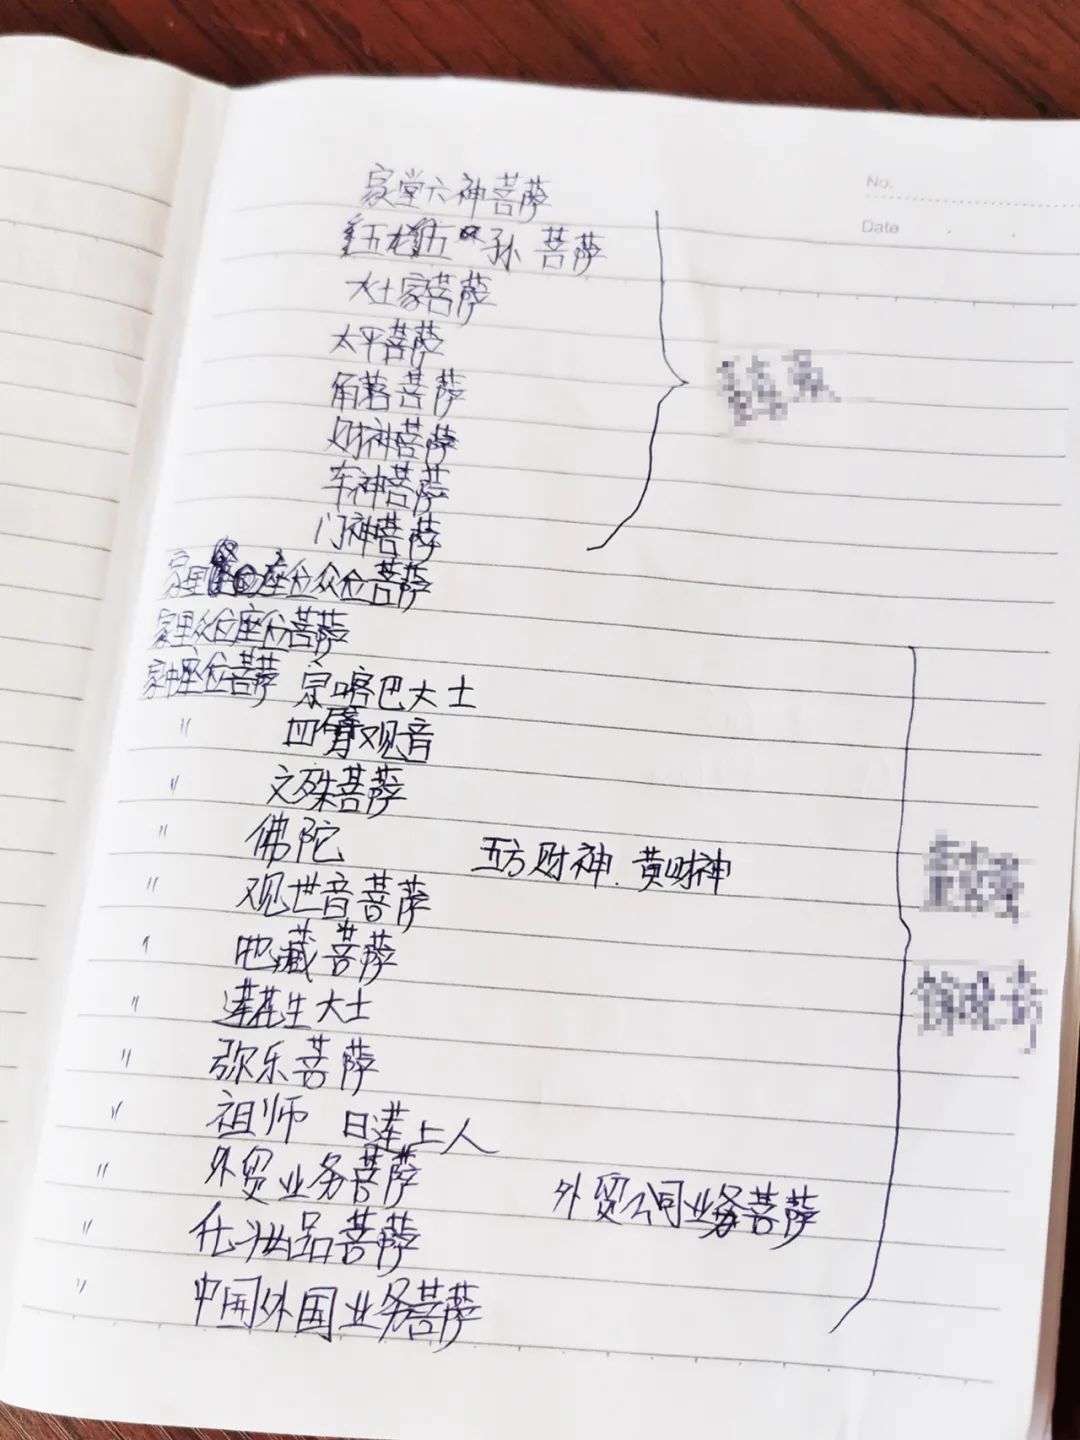 家堂六神菩萨
No.
五 五 孙 菩萨
Date
灶家菩萨
太平菩萨
角落菩萨
财神菩萨
车神菩萨
门神菩萨
家里 座位众位菩萨
家里众位座位菩萨
家中座位菩萨 宗喀巴大士
〃 四臂观音
〃 文殊菩萨
〃 佛陀 五方财神. 黄财神
〃 观世音菩萨
〃 地藏菩萨
〃 莲花生大士
〃 弥乐菩萨
〃 祖师 日莲上人
〃 外贸业务菩萨 外贸公司业务菩萨
〃 化妆品菩萨
〃 中国外国业务菩萨